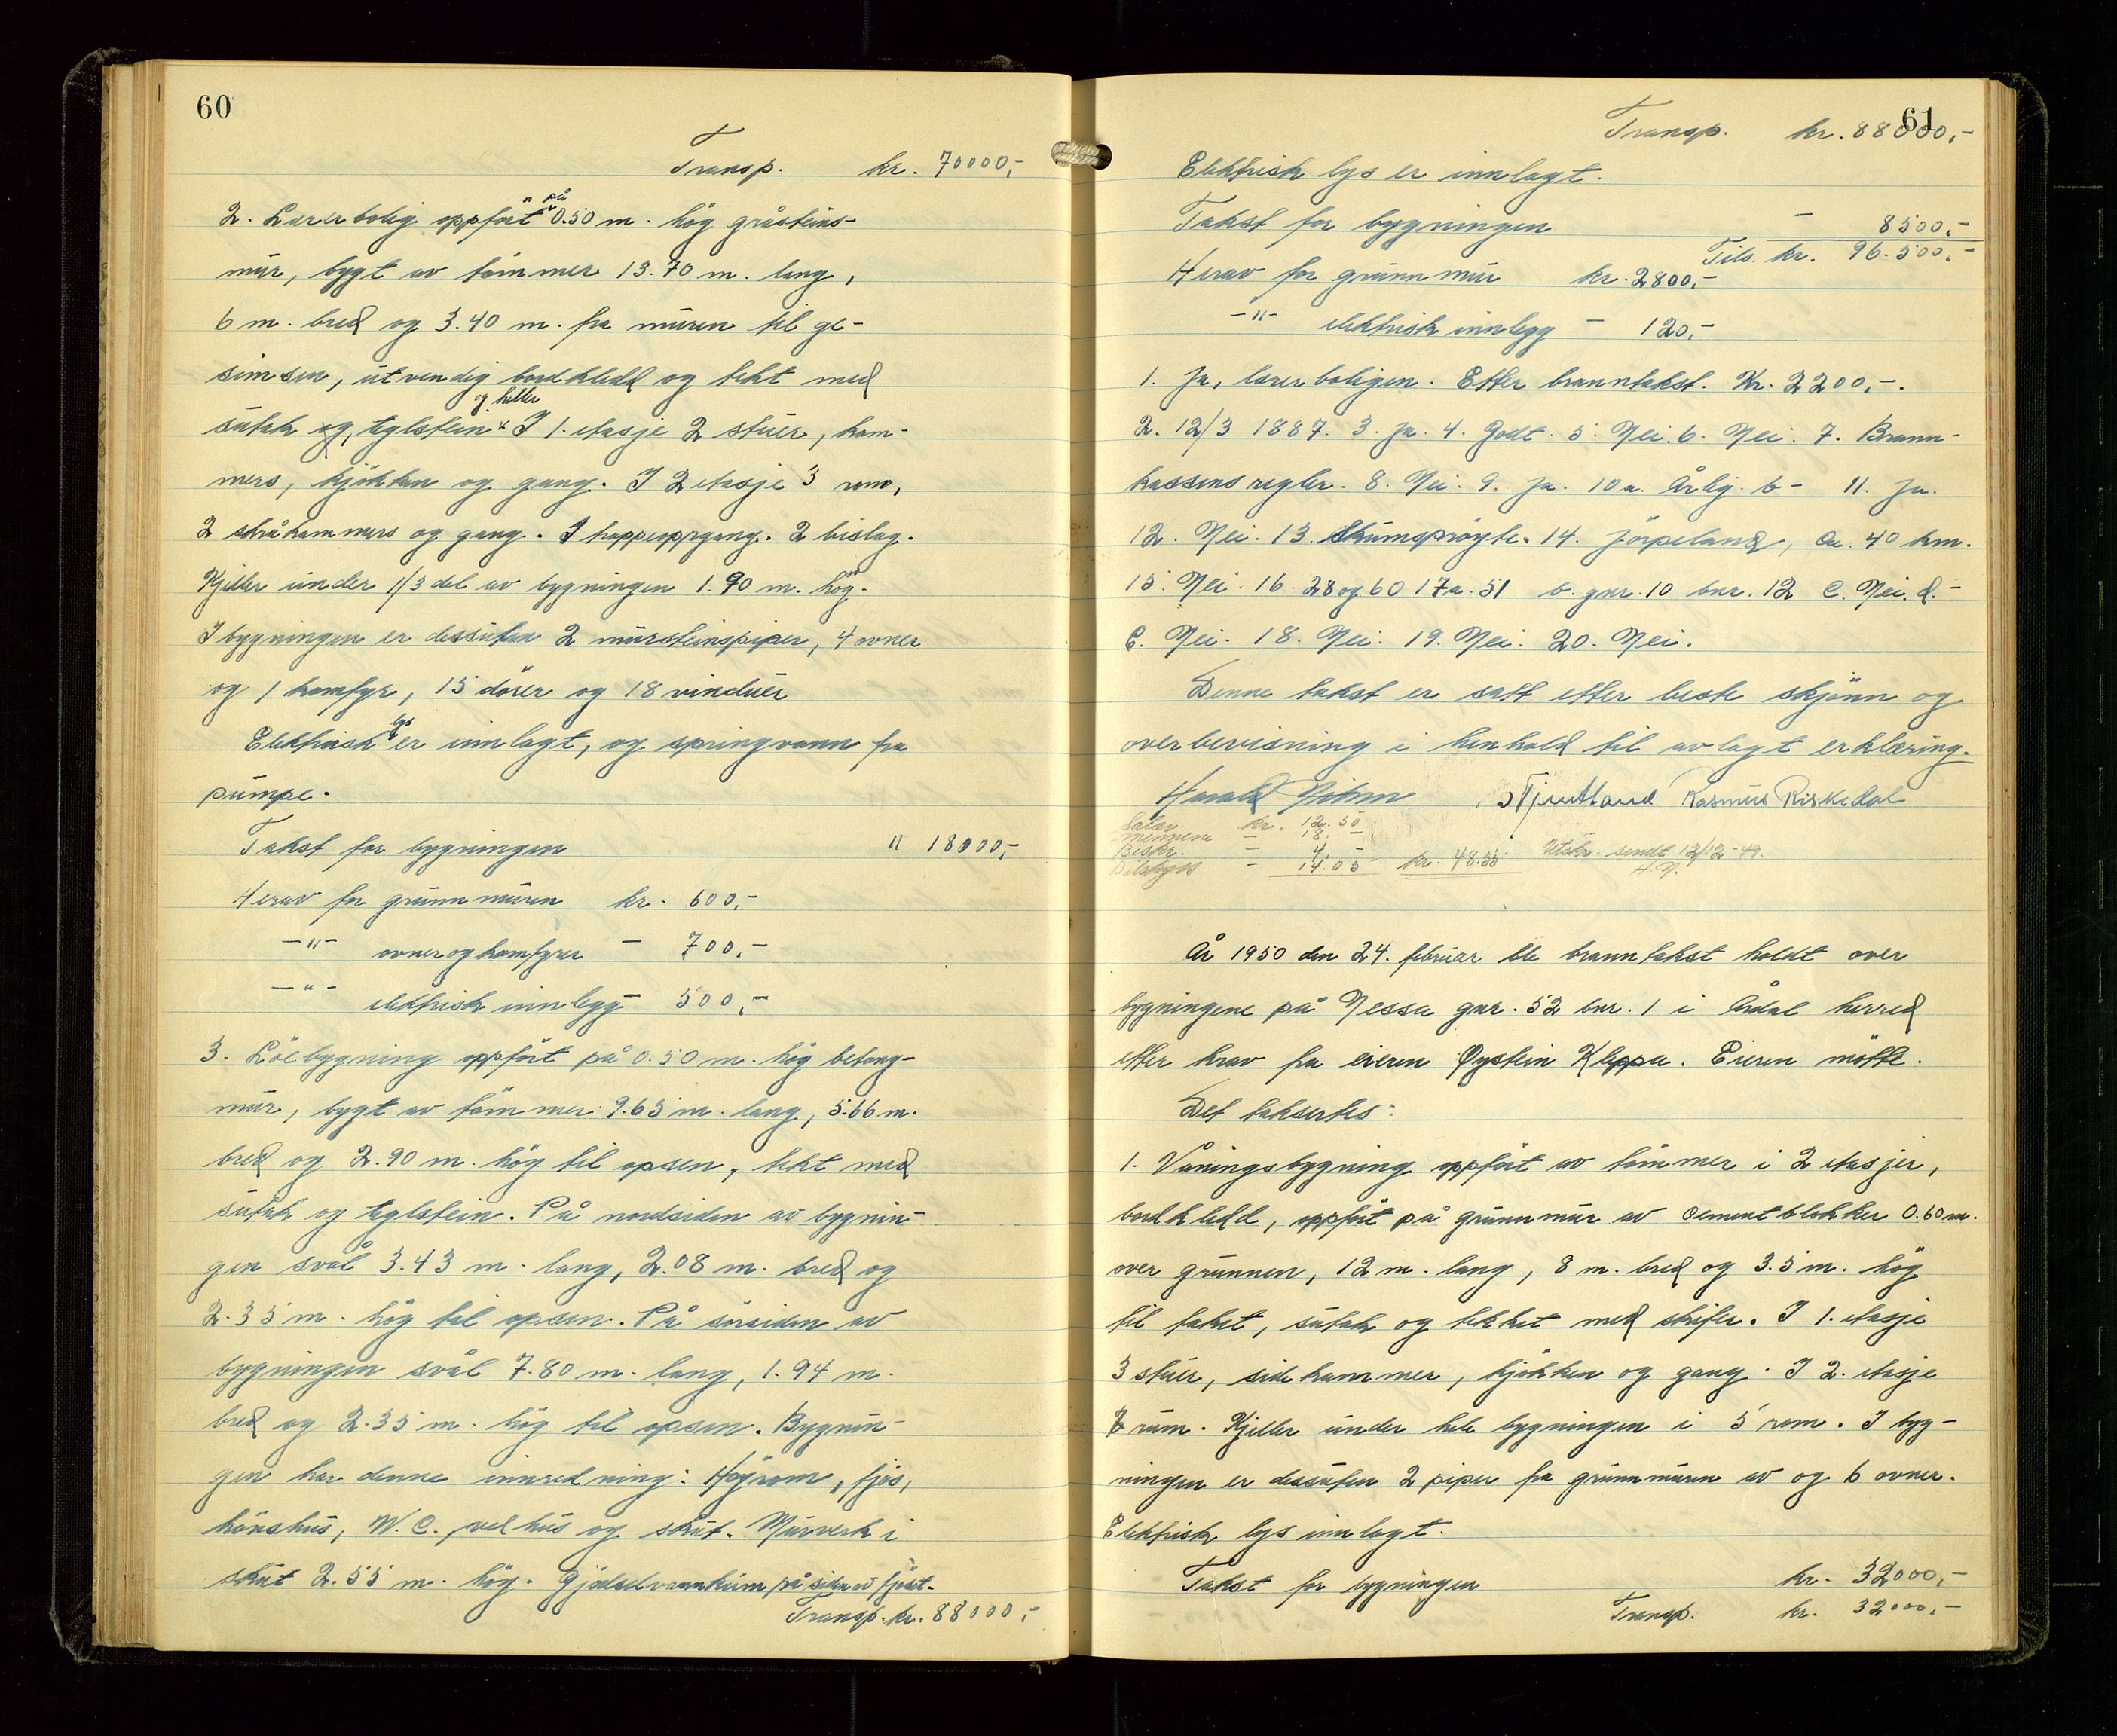 60
Transp. kr. 70000,-
2. Lærerbolig oppført på 0.50 m. høg gråsteins-
mur, bygt av tømmer 13.70 m. lang,
6 m. bred og 3.40 m. fra muren til ge-
simsen, utvendig bordkledd og tekt med
sutak og teglstein og heller. I 1. etasje 2 stuer, kam-
mers, kjøkken og gang. I 2 etasje 3 rom,
2 skråkammers og gang. I trappeoppgang. 2 bislag.
Kjeller under 1/3 del av bygningen 1.90 m. høg.
I bygningen er dessuten 2 mursteinspiper, 4 ovner
og 1 komfyr, 15 dører og 18 vinduer
Elektrisk lys er innlagt, og springvann fra
pumpe.
Takst for bygningen " 18000,-
Herav for grunnmuren kr. 600,-
-"- ovner og komfyrer - 700,-
-"- elektrisk innlegg - 500,-
3. Löebygning oppført på 0.50 m. høg betong-
mur, bygt av tømmer 9.65 m. lang, 5.66 m.
bred og 2.90 m. høg til opsen, tekt med
sutak og teglstein. På nordsiden av bygnin-
gen svål 3.43 m. lang, 2.08 m. bred og
2.35 m. høg til opsen. På sørsiden av
bygningen svål 7.80 m. lang, 1.94 m.
bred og 2.35 m. høg til opsen. Bygnin-
gen har denne innredning: Høyrom, fjøs,
hønshus, W.C. vedhus og skut. Murverk i
skut 2.55 m. høg. Gjødselvannkum på siden av fjøset.
Transp. kr. 88000,-
61
Transp. kr. 88000,-
Elektrisk lys er innlagt.
Takst for bygningen - 8500,-
Tils. kr. 96.500,-
Herav for grunnmur kr. 2800,-
-"- elektrisk innlegg - 120,-
1. Ja, lærerboligen. Etter branntakst. Kr. 2200,-.
2. 12/3 1887. 3. Ja. 4. Godt. 5. Nei. 6. Nei. 7. Brann-
kassens regler. 8. Nei. 9. Ja. 10 a. Årlig. b - 11. Ja.
12. Nei. 13. Skumsprøyte. 14. Jørpeland, ca. 40 km.
15. Nei. 16. 28 og 60 17 a. 51 b. gnr. 10 bnr. 12 C. Nei. d. -
e. Nei. 18. Nei. 19. Nei. 20. Nei.
Denne takst er satt etter beste skjønn og
overbevisning i henhold til avlagt erklæring.
Harald S Tjentland Rasmus Riskedal
Salær kr. 12.50
mennene - 18. -
Beskr. - 4. -
Bilskyss - 14.05 kr. 48.55 Utskr. sendt 12/12-49.
H.N.
År 1950 den 24. februar ble branntakst holdt over
bygningene på Nessa gnr. 52 bnr. 1 i Årdal herred
etter krav fra eieren Øystein Kleppa. Eieren møtte.
Det taksertes:
1. Våningsbygning oppført av tømmer i 2 etasjer,
bordkledd, oppført på grunnmur av cementblokker 0.60 m.
over grunnen, 12 m. lang, 8 m. bred og 3.5 m. høg
til taket, sutak og tekket med skifer. I 1. etasje
3 stuer, sidekammer, kjøkken og gang. I 2. etasje
rum. Kjeller under hele bygningen i 5 rom. I byg-
ningen er dessuten 2 piper fra grunnmuren av og 6 ovner.
Elektrisk lys innlagt.
Takst for bygningen kr. 32000,-
Transp. kr. 32000,-